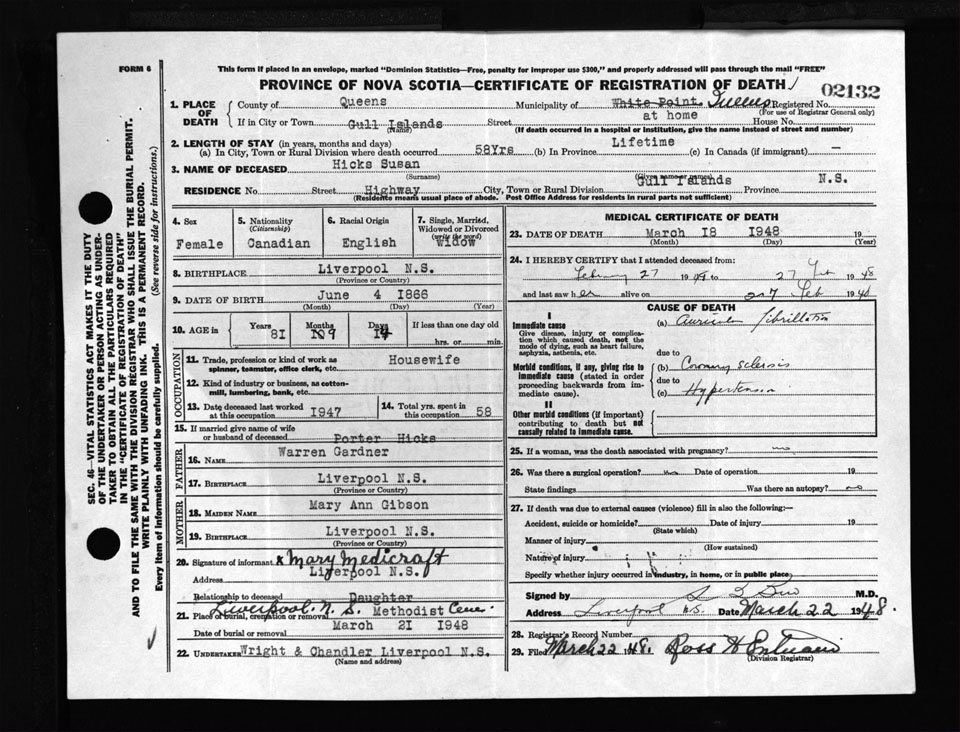 FORM 6
This form if placed in an envelope, marked "Dominion Statistics—Free, penalty for improper use $300," and properly addressed will pass through the mail "FREE"
PROVINCE OF NOVA SCOTIA—CERTIFICATE OF REGISTRATION OF DEATH
02132
1. PLACE OF DEATH
County of Queens Municipality of White Point. Queens Registered No.
(For use of Registrar General only)
If in City or Town Gull Islands Street at home House No.
(Name) (If death occurred in a hospital or institution, give the name instead of street and number)
2. LENGTH OF STAY (in years, months and days)
(a) In City, Town or Rural Division where death occurred 58Yrs (b) In Province Lifetime (c) In Canada (if immigrant) —
3. NAME OF DECEASED Hicks Susan
(Surname) (Given name or names)
RESIDENCE No. Street Highway City, Town or Rural Division Gull Islands Province N.S.
(Residents means usual place of abode. Post Office Address for residents in rural parts not sufficient)
4. Sex
Female
5. Nationality
(Citizenship)
Canadian
6. Racial Origin
English
7. Single, Married, Widowed or Divorced
(write the word)
Widow
8. BIRTHPLACE Liverpool N.S.
(Province or Country)
9. DATE OF BIRTH June 4 1866
(Month) (Day) (Year)
10. AGE in
Years 81
Months 9
Days 14
If less than one day old
hrs. or min.
OCCUPATION
11. Trade, profession or kind of work as spinner, teamster, office clerk, etc. Housewife
12. Kind of industry or business, as cotton-mill, lumbering, bank, etc.
13. Date deceased last worked at this occupation 1947
14. Total yrs. spent in this occupation 58
15. If married give name of wife or husband of deceased Porter Hicks
FATHER
16. NAME Warren Gardner
17. BIRTHPLACE Liverpool N.S.
(Province or Country)
MOTHER
18. MAIDEN NAME Mary Ann Gibson
19. BIRTHPLACE Liverpool N.S.
(Province or Country)
20. Signature of informant x Mary Medicraft
Address Liverpool N.S.
Relationship to deceased Daughter
21. Place of burial, cremation or removal Liverpool. N. S. Methodist Cem.
Date of burial or removal March 21 1948
22. UNDERTAKER Wright & Chandler Liverpool N.S.
(Name and address)
MEDICAL CERTIFICATE OF DEATH
23. DATE OF DEATH March 18 1948 19
(Month) (Day) (Year)
24. I HEREBY CERTIFY that I attended deceased from:
February 27 1948 to 27 Feb 1948
and last saw her alive on 27 Feb 1948
CAUSE OF DEATH
I
Immediate cause
Give disease, injury or complication which caused death, not the mode of dying, such as heart failure, asphyxia, asthenia, etc.
(a) Auricular fibrillation
due to
Morbid conditions, if any, giving rise to immediate cause (stated in order proceeding backwards from immediate cause).
(b) Coronary Sclerosis
due to
(c) Hypertension
II
Other morbid conditions (if important) contributing to death but not causally related to immediate cause.
25. If a woman, was the death associated with pregnancy? no
26. Was there a surgical operation? no Date of operation 19
State findings Was there an autopsy? no
27. If death was due to external causes (violence) fill in also the following:—
Accident, suicide or homicide? Date of injury 19
(State which)
Manner of injury
(How sustained)
Nature of injury
Specify whether injury occurred in industry, in home, or in public place
Signed by M.D.
Address Liverpool N.S. Date March 22 1948.
28. Registrar's Record Number
29. Filed March 22 1948. Ross H
(Division Registrar)
SEC. 46—VITAL STATISTICS ACT MAKES IT THE DUTY
OF THE UNDERTAKER OR PERSON ACTING AS UNDER-
TAKER TO OBTAIN ALL THE PARTICULARS REQUIRED
IN THE "CERTIFICATE OF REGISTRATION OF DEATH"
AND TO FILE THE SAME WITH THE DIVISION REGISTRAR WHO SHALL ISSUE THE BURIAL PERMIT.
WRITE PLAINLY WITH UNFADING INK. THIS IS A PERMANENT RECORD.
Every item of information should be carefully supplied. (See reverse side for instructions.)